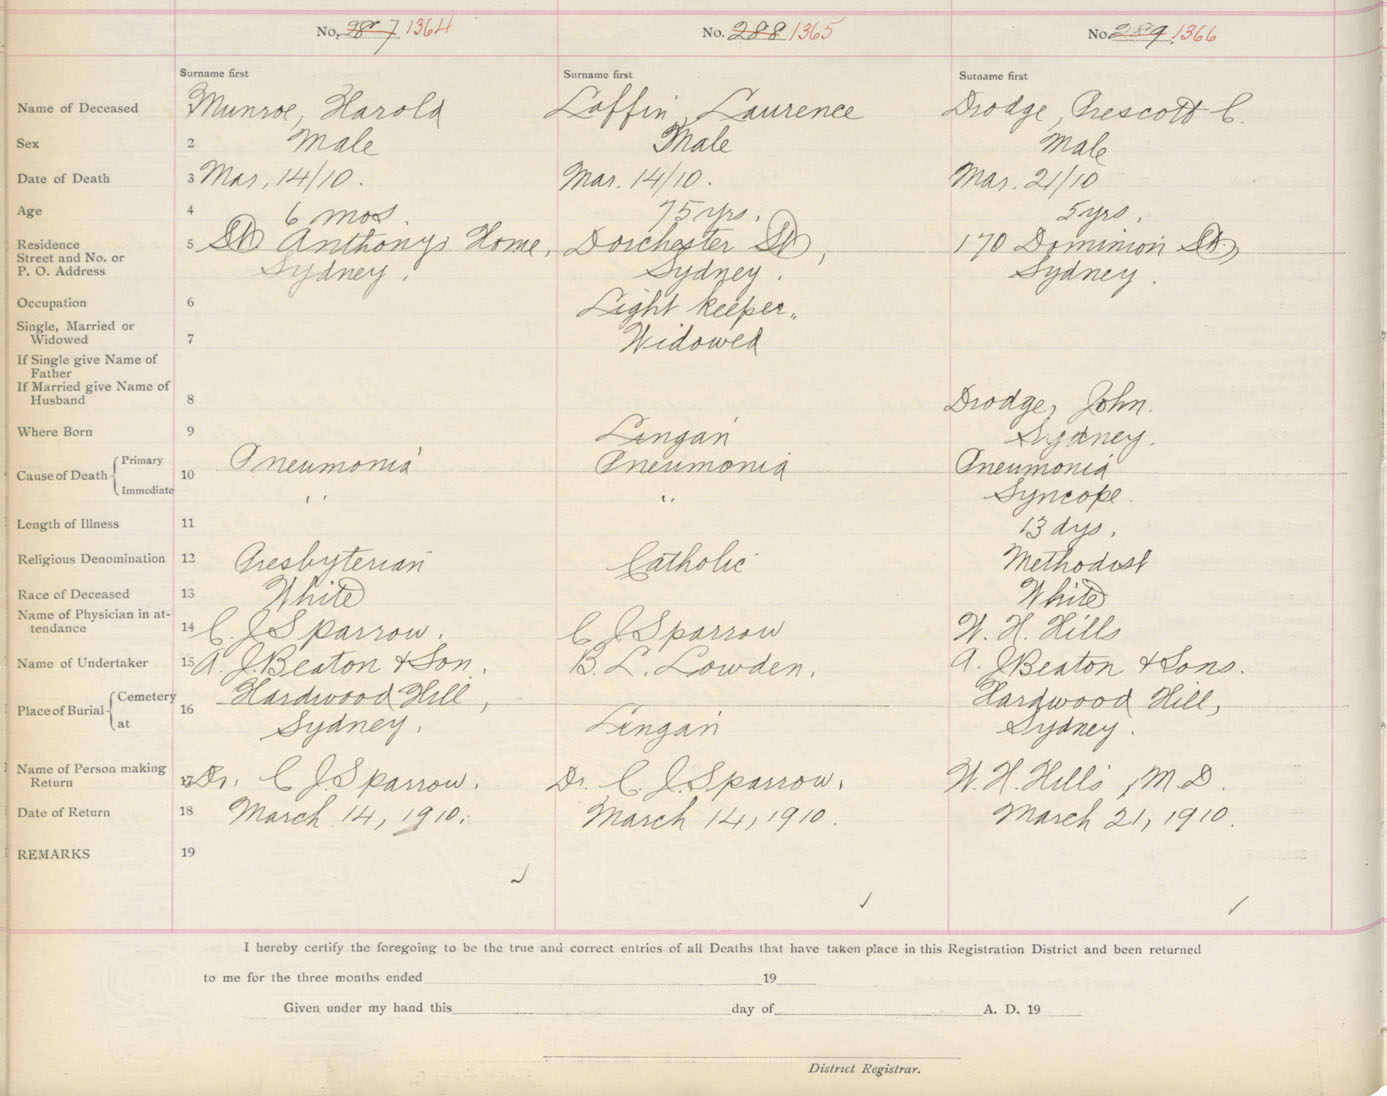 No. 287 1364 No. 288 1365 No. 289 1366
Surname first Surname first Surname first
Name of Deceased 1 Munroe, Harold Laffin, Laurence Drodge, Prescott C.
Sex 2 Male Male Male
Date of Death 3 Mar, 14/10. Mar. 14/10. Mar. 21/10
Age 4 6 mos. 75 yrs. 5 yrs.
Residence 5 St Anthonys Home, Dorchester St, 170 Dominion St,
Street and No. or
P. O. Address Sydney. Sydney. Sydney.
Occupation 6 Light keeper.
Single, Married or
Widowed 7 Widowed
If Single give Name of
Father
If Married give Name of
Husband 8 Drodge, John.
Where Born 9 Lingan Sydney.
Cause of Death Primary 10 Pneumonia Pneumonia Pneumonia
Immediate " " Syncope.
Length of Illness 11 13 dys.
Religious Denomination 12 Presbyterian Catholic Methodist
Race of Deceased 13 White White
Name of Physician in at-
tendance 14 C. J. Sparrow. C J. Sparrow W. H. Hills
Name of Undertaker 15 A. J. Beaton & Son. B. L. Lowden. A. J. Beaton & Sons.
Place of Burial Cemetery 16 Hardwood Hill, Hardwood Hill,
at Sydney. Lingan Sydney.
Name of Person making
Return 17 Dr. C J. Sparrow. Dr. C. J. Sparrow. W. H. Hills, M.D.
Date of Return 18 March 14, 1910. March 14, 1910. March 21, 1910.
REMARKS 19
I hereby certify the foregoing to be the true and correct entries of all Deaths that have taken place in this Registration District and been returned
to me for the three months ended 19
Given under my hand this day of A. D. 19
District Registrar.